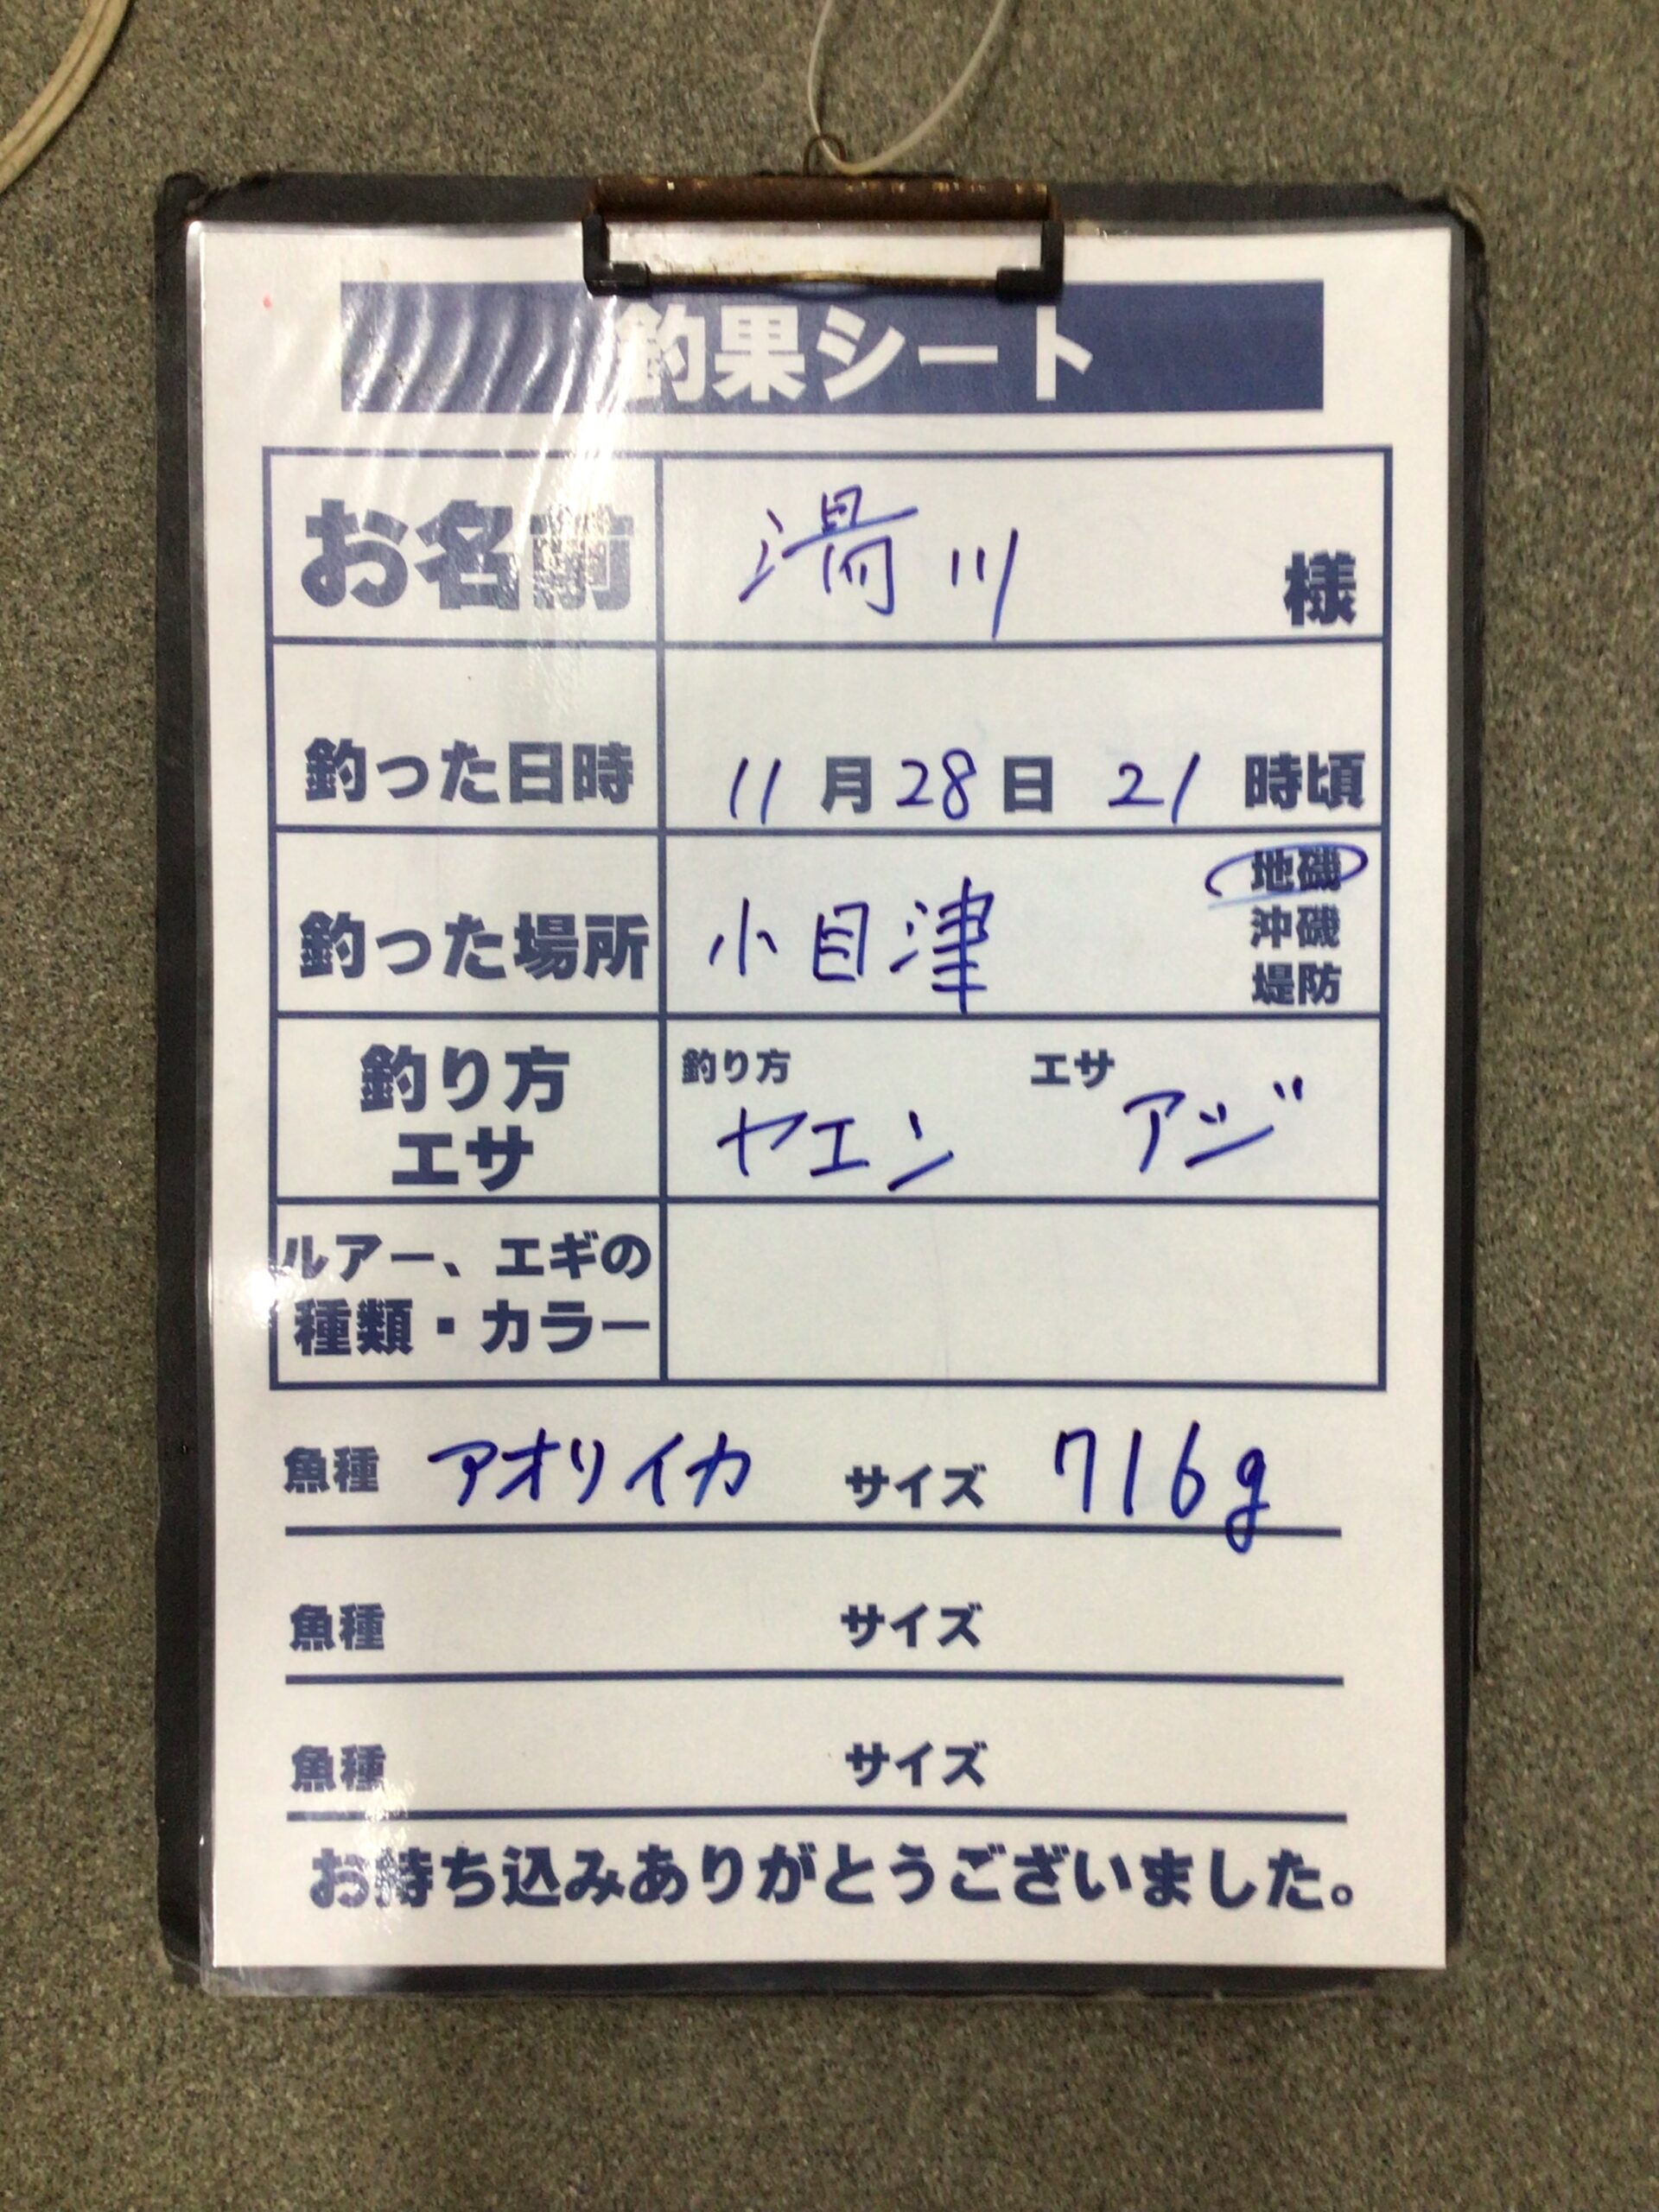 釣果シート
お名前 湯川 様
釣った日時 11月28日 21時頃
釣った場所 小目津 地磯
沖磯
堤防
釣り方 エサ
釣り方
エサ
ヤエン アジ
ルアー、エギの
種類・カラー
魚種 アオリイカ サイズ 716g
魚種 サイズ
魚種 サイズ
お持ち込みありがとうございました。